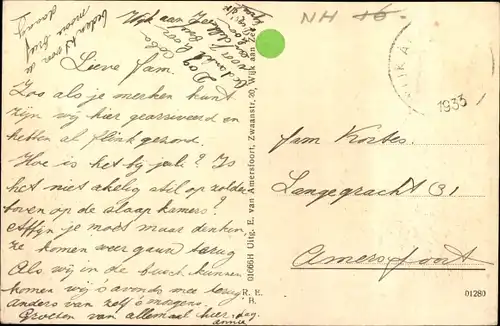 Wijk aan Zee
Lieve fam.
Zoo als je merken kunt
zijn wij hier gearriveerd en
hebben al flink gezond.
Hoe is het bij jull? Is
het niet akelig stil op zolder
boven op de slaap kamers?
Affijn je moet maar denken,
ze komen weer gauw terug
Als wij in de buurt kunnen
komen wij s'avonds mee terug
anders van zelf s'morgens.
Groeten van allemaal hier. dag.
annie
bedankt voor de
mooie brief
daag
NH 16.
WIJK A
1933
fam Kortes.
Langegracht 31
Amersfoort
01666H Uitg. E. van Amersfoort, Zwaanstr. 20, Wijk aan Zee
R. E.
B.
01280